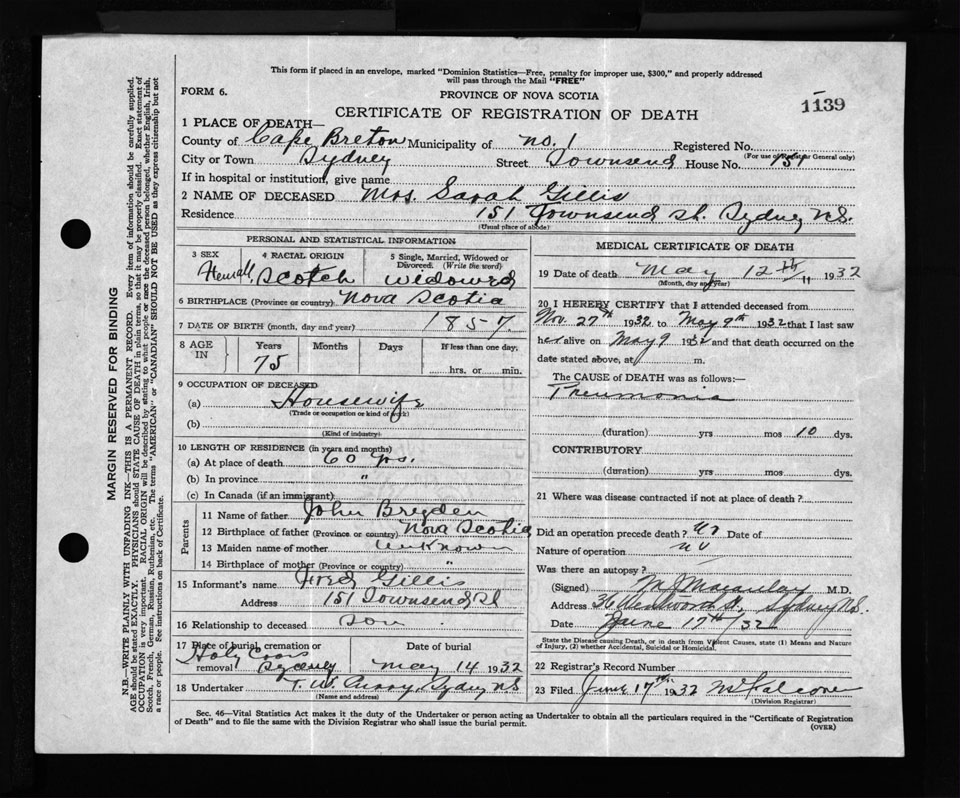 This form if placed in an envelope, marked "Dominion Statistics—Free, penalty for improper use, $300," and properly addressed
will pass through the Mail "FREE"
FORM 6.
PROVINCE OF NOVA SCOTIA
1139
CERTIFICATE OF REGISTRATION OF DEATH
1 PLACE OF DEATH—
County of Cape Breton Municipality of No. 1 Registered No.
(For use of Registrar General only)
City or Town Sydney Street Townsend House No. 151
If in hospital or institution, give name
2 NAME OF DECEASED Mrs. Sarah Gillis
Residence 151 Townsend St. Sydney N.S.
(Usual place of abode)
PERSONAL AND STATISTICAL INFORMATION
3 SEX 4 RACIAL ORIGIN 5 Single, Married, Widowed or Divorced. (Write the word)
Scotch Widowed
6 BIRTHPLACE (Province or country) Nova Scotia
7 DATE OF BIRTH (month, day and year) 1857
8 AGE IN Years Months Days If less than one day,
75 hrs. or min.
9 OCCUPATION OF DECEASED
(a) Housewife
(Trade or occupation or kind of work)
(b)
(Kind of industry)
10 LENGTH OF RESIDENCE (in years and months)
(a) At place of death 60 yrs.
(b) In province "
(c) In Canada (if an immigrant)
Parents
11 Name of father John Bryden
12 Birthplace of father (Province or country) Nova Scotia
13 Maiden name of mother Unknown
14 Birthplace of mother (Province or country) "
15 Informant's name Fred Gillis
Address 151 Townsend St
16 Relationship to deceased Son
17 Place of burial, cremation or removal Date of burial
Holy Cross
Sydney May 14 1932
18 Undertaker T. W. Curry, Sydney N.S
(Name and address)
MEDICAL CERTIFICATE OF DEATH
19 Date of death May 12th 1932
(Month, day and year)
20 I HEREBY CERTIFY that I attended deceased from
Nov. 27th 1932 to May 9th 1932 that I last saw
her alive on May 9 1932 and that death occurred on the
date stated above, at m.
The CAUSE of DEATH was as follows:—
Pneumonia
(duration) yrs mos 10 dys.
CONTRIBUTORY
(duration) yrs mos dys.
21 Where was disease contracted if not at place of death?
Did an operation precede death? No Date of
Nature of operation no
Was there an autopsy?
(Signed) M. J. Macaulay M.D.
Address 36 Wentworth St, Sydney N.S.
Date June 17th/32
State the Disease causing Death, or in death from Violent Causes, state (1) Means and Nature
of Injury, (2) whether Accidental, Suicidal or Homicidal.
22 Registrar's Record Number
23 Filed June 17th 1932
(Division Registrar)
Sec. 46—Vital Statistics Act makes it the duty of the Undertaker or person acting as Undertaker to obtain all the particulars required in the "Certificate of Registration
of Death" and to file the same with the Division Registrar who shall issue the burial permit.
(OVER)
MARGIN RESERVED FOR BINDING
N.B.—WRITE PLAINLY WITH UNFADING INK—THIS IS A PERMANENT RECORD. Every item of information should be carefully supplied.
AGE should be stated EXACTLY. PHYSICIANS should STATE CAUSE OF DEATH in plain terms, so that it may be properly classified. Exact statement of
OCCUPATION is very important. RACIAL ORIGIN will be described by stating to what people or race the deceased person belonged, whether English, Irish,
Scotch, French, German, Russian, Ruthenian, etc. The terms "AMERICAN" or "CANADIAN" SHOULD NOT BE USED as they express citizenship but not
a race or people. See instructions on back of Certificate.